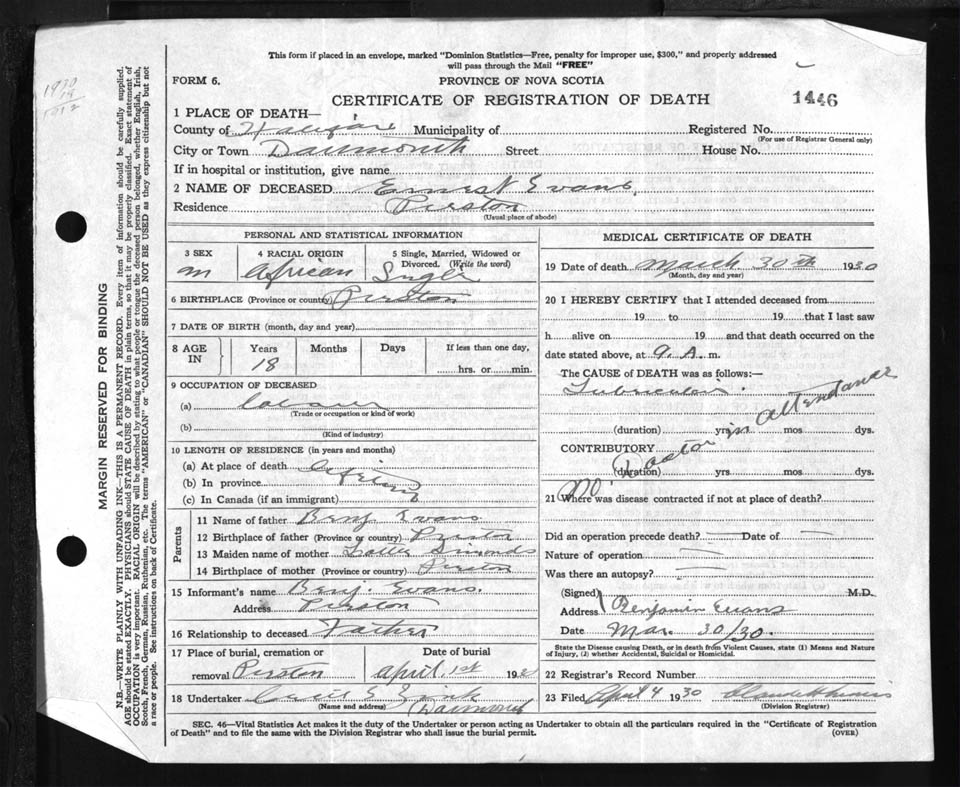 This form if placed in an envelope, marked "Dominion Statistics—Free, penalty for improper use, $300," and properly addressed
will pass through the Mail "FREE"
FORM 6.
PROVINCE OF NOVA SCOTIA
CERTIFICATE OF REGISTRATION OF DEATH
1446
1930
1912
1 PLACE OF DEATH—
County of Halifax Municipality of Registered No.
(For use of Registrar General only)
City or Town Dartmouth Street House No.
If in hospital or institution, give name
2 NAME OF DECEASED Ernest Evans
Residence Preston
(Usual place of abode)
PERSONAL AND STATISTICAL INFORMATION
3 SEX 4 RACIAL ORIGIN 5 Single, Married, Widowed or
Divorced. (Write the word)
m African Single
6 BIRTHPLACE (Province or country) Preston
7 DATE OF BIRTH (month, day and year)
8 AGE IN Years Months Days If less than one day,
18 hrs. or min.
9 OCCUPATION OF DECEASED
(a) Labourer
(Trade or occupation or kind of work)
(b)
(Kind of industry)
10 LENGTH OF RESIDENCE (in years and months)
(a) At place of death Lifetime
(b) In province
(c) In Canada (if an immigrant)
Parents
11 Name of father Benj Evans
12 Birthplace of father (Province or country) Preston
13 Maiden name of mother Simonds
14 Birthplace of mother (Province or country) Preston
15 Informant's name Benj. Evans.
Address Preston
16 Relationship to deceased Father
17 Place of burial, cremation or Date of burial
removal Preston April 1st 193
18 Undertaker
(Name and address) Dartmouth
MEDICAL CERTIFICATE OF DEATH
19 Date of death March 30th 1930
(Month, day and year)
20 I HEREBY CERTIFY that I attended deceased from
19 to 19 that I last saw
h alive on 19 and that death occurred on the
date stated above, at 9. A. m.
The CAUSE of DEATH was as follows:—
(duration) yrs. mos dys.
CONTRIBUTORY
(duration) yrs mos dys.
no Doctor in attendance
21 Where was disease contracted if not at place of death?
Did an operation precede death? — Date of —
Nature of operation —
Was there an autopsy? —
(Signed) M.D.
Benjamin Evans
Address
Date Mar. 30/30.
State the Disease causing Death, or in death from Violent Causes, state (1) Means and Nature
of Injury, (2) whether Accidental, Suicidal or Homicidal.
22 Registrar's Record Number
23 Filed April 4 1930
(Division Registrar)
SEC. 46—Vital Statistics Act makes it the duty of the Undertaker or person acting as Undertaker to obtain all the particulars required in the "Certificate of Registration
of Death" and to file the same with the Division Registrar who shall issue the burial permit.
(OVER)
MARGIN RESERVED FOR BINDING
N.B.—WRITE PLAINLY WITH UNFADING INK—THIS IS A PERMANENT RECORD. Every item of information should be carefully supplied.
AGE should be stated EXACTLY. PHYSICIANS should STATE CAUSE OF DEATH in plain terms, so that it may be properly classified. Exact statement of
OCCUPATION is very important. RACIAL ORIGIN will be described by stating to what people or tongue the deceased person belonged, whether English, Irish,
Scotch, French, German, Russian, Ruthenian, etc. The terms "AMERICAN" or "CANADIAN" SHOULD NOT BE USED as they express citizenship but not
a race or people. See instructions on back of Certificate.